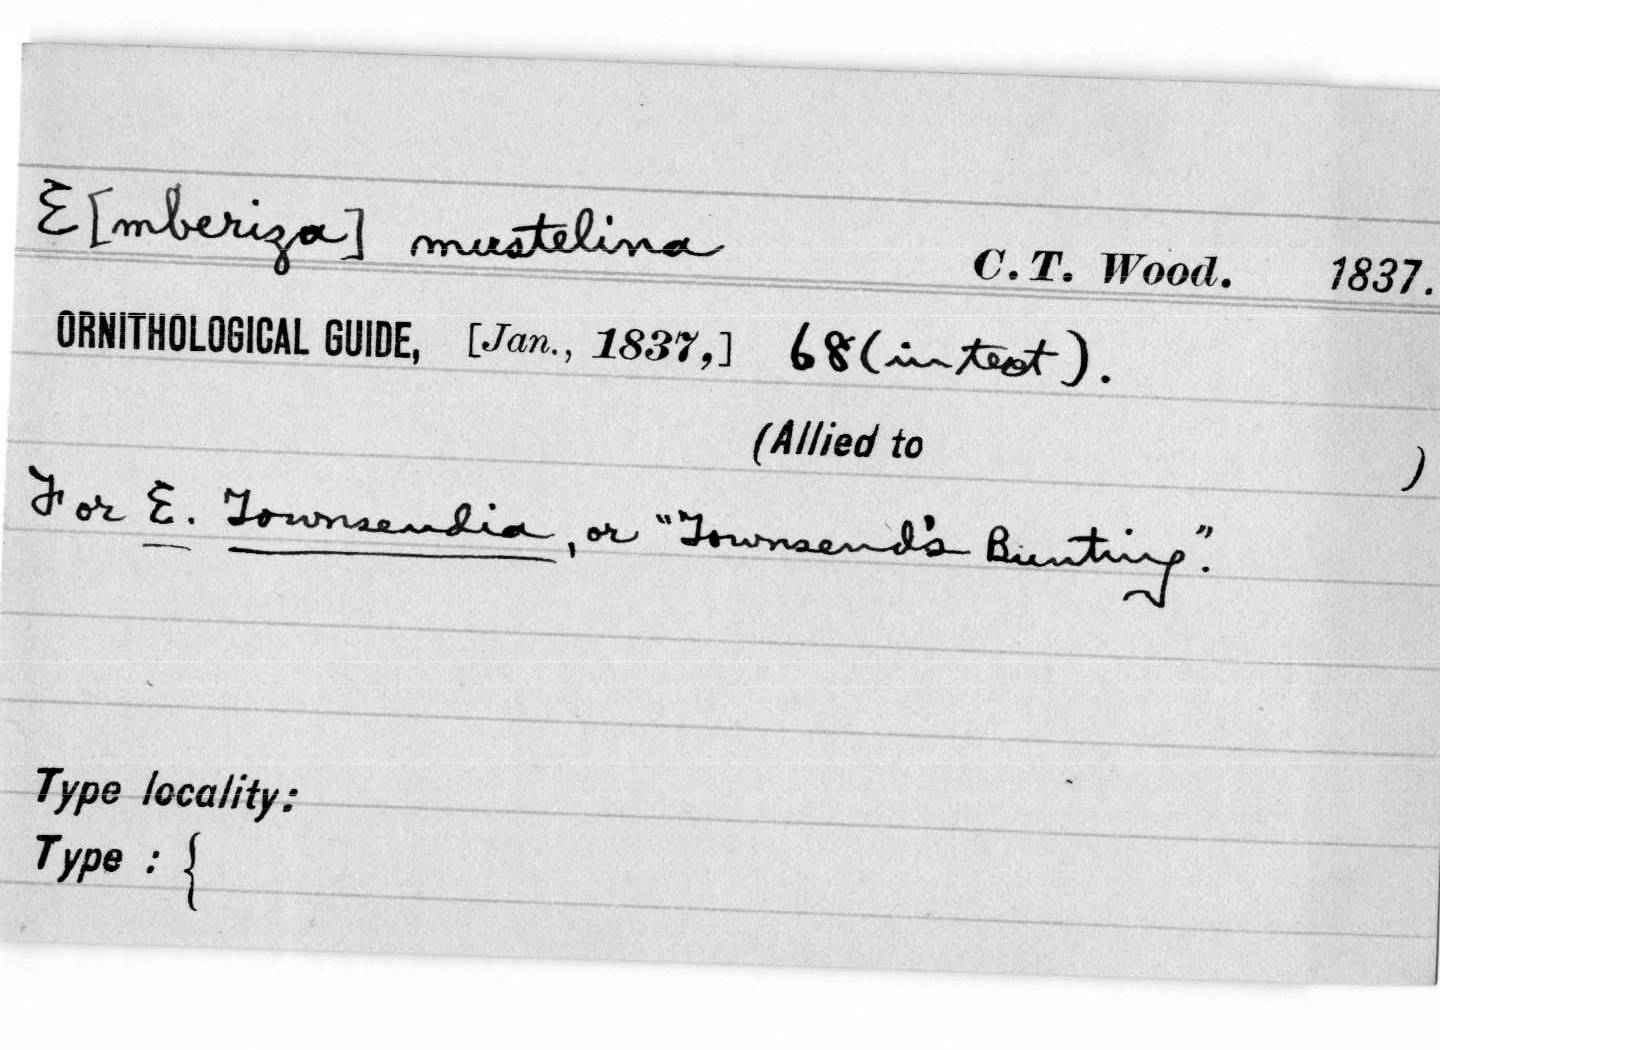 E[mberiza] mustelina C. T. Wood. 1837.
ORNITHOLOGICAL GUIDE, [Jan., 1837,] 68 (in text).
(Allied to )
For E. Townsendia, or "Townsend's Bunting".
Type locality:
Type : {